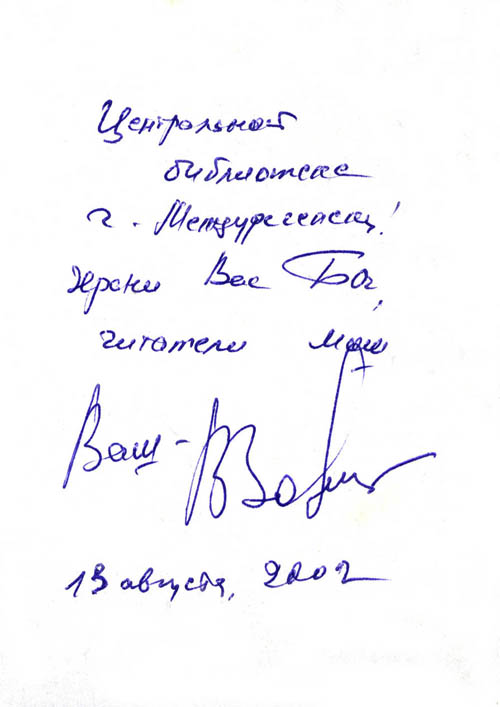 Центральной
библиотеке
г. Междуреченск!
Храни Вас Бог,
читатели мои
Ваш -
13 августа, 2002